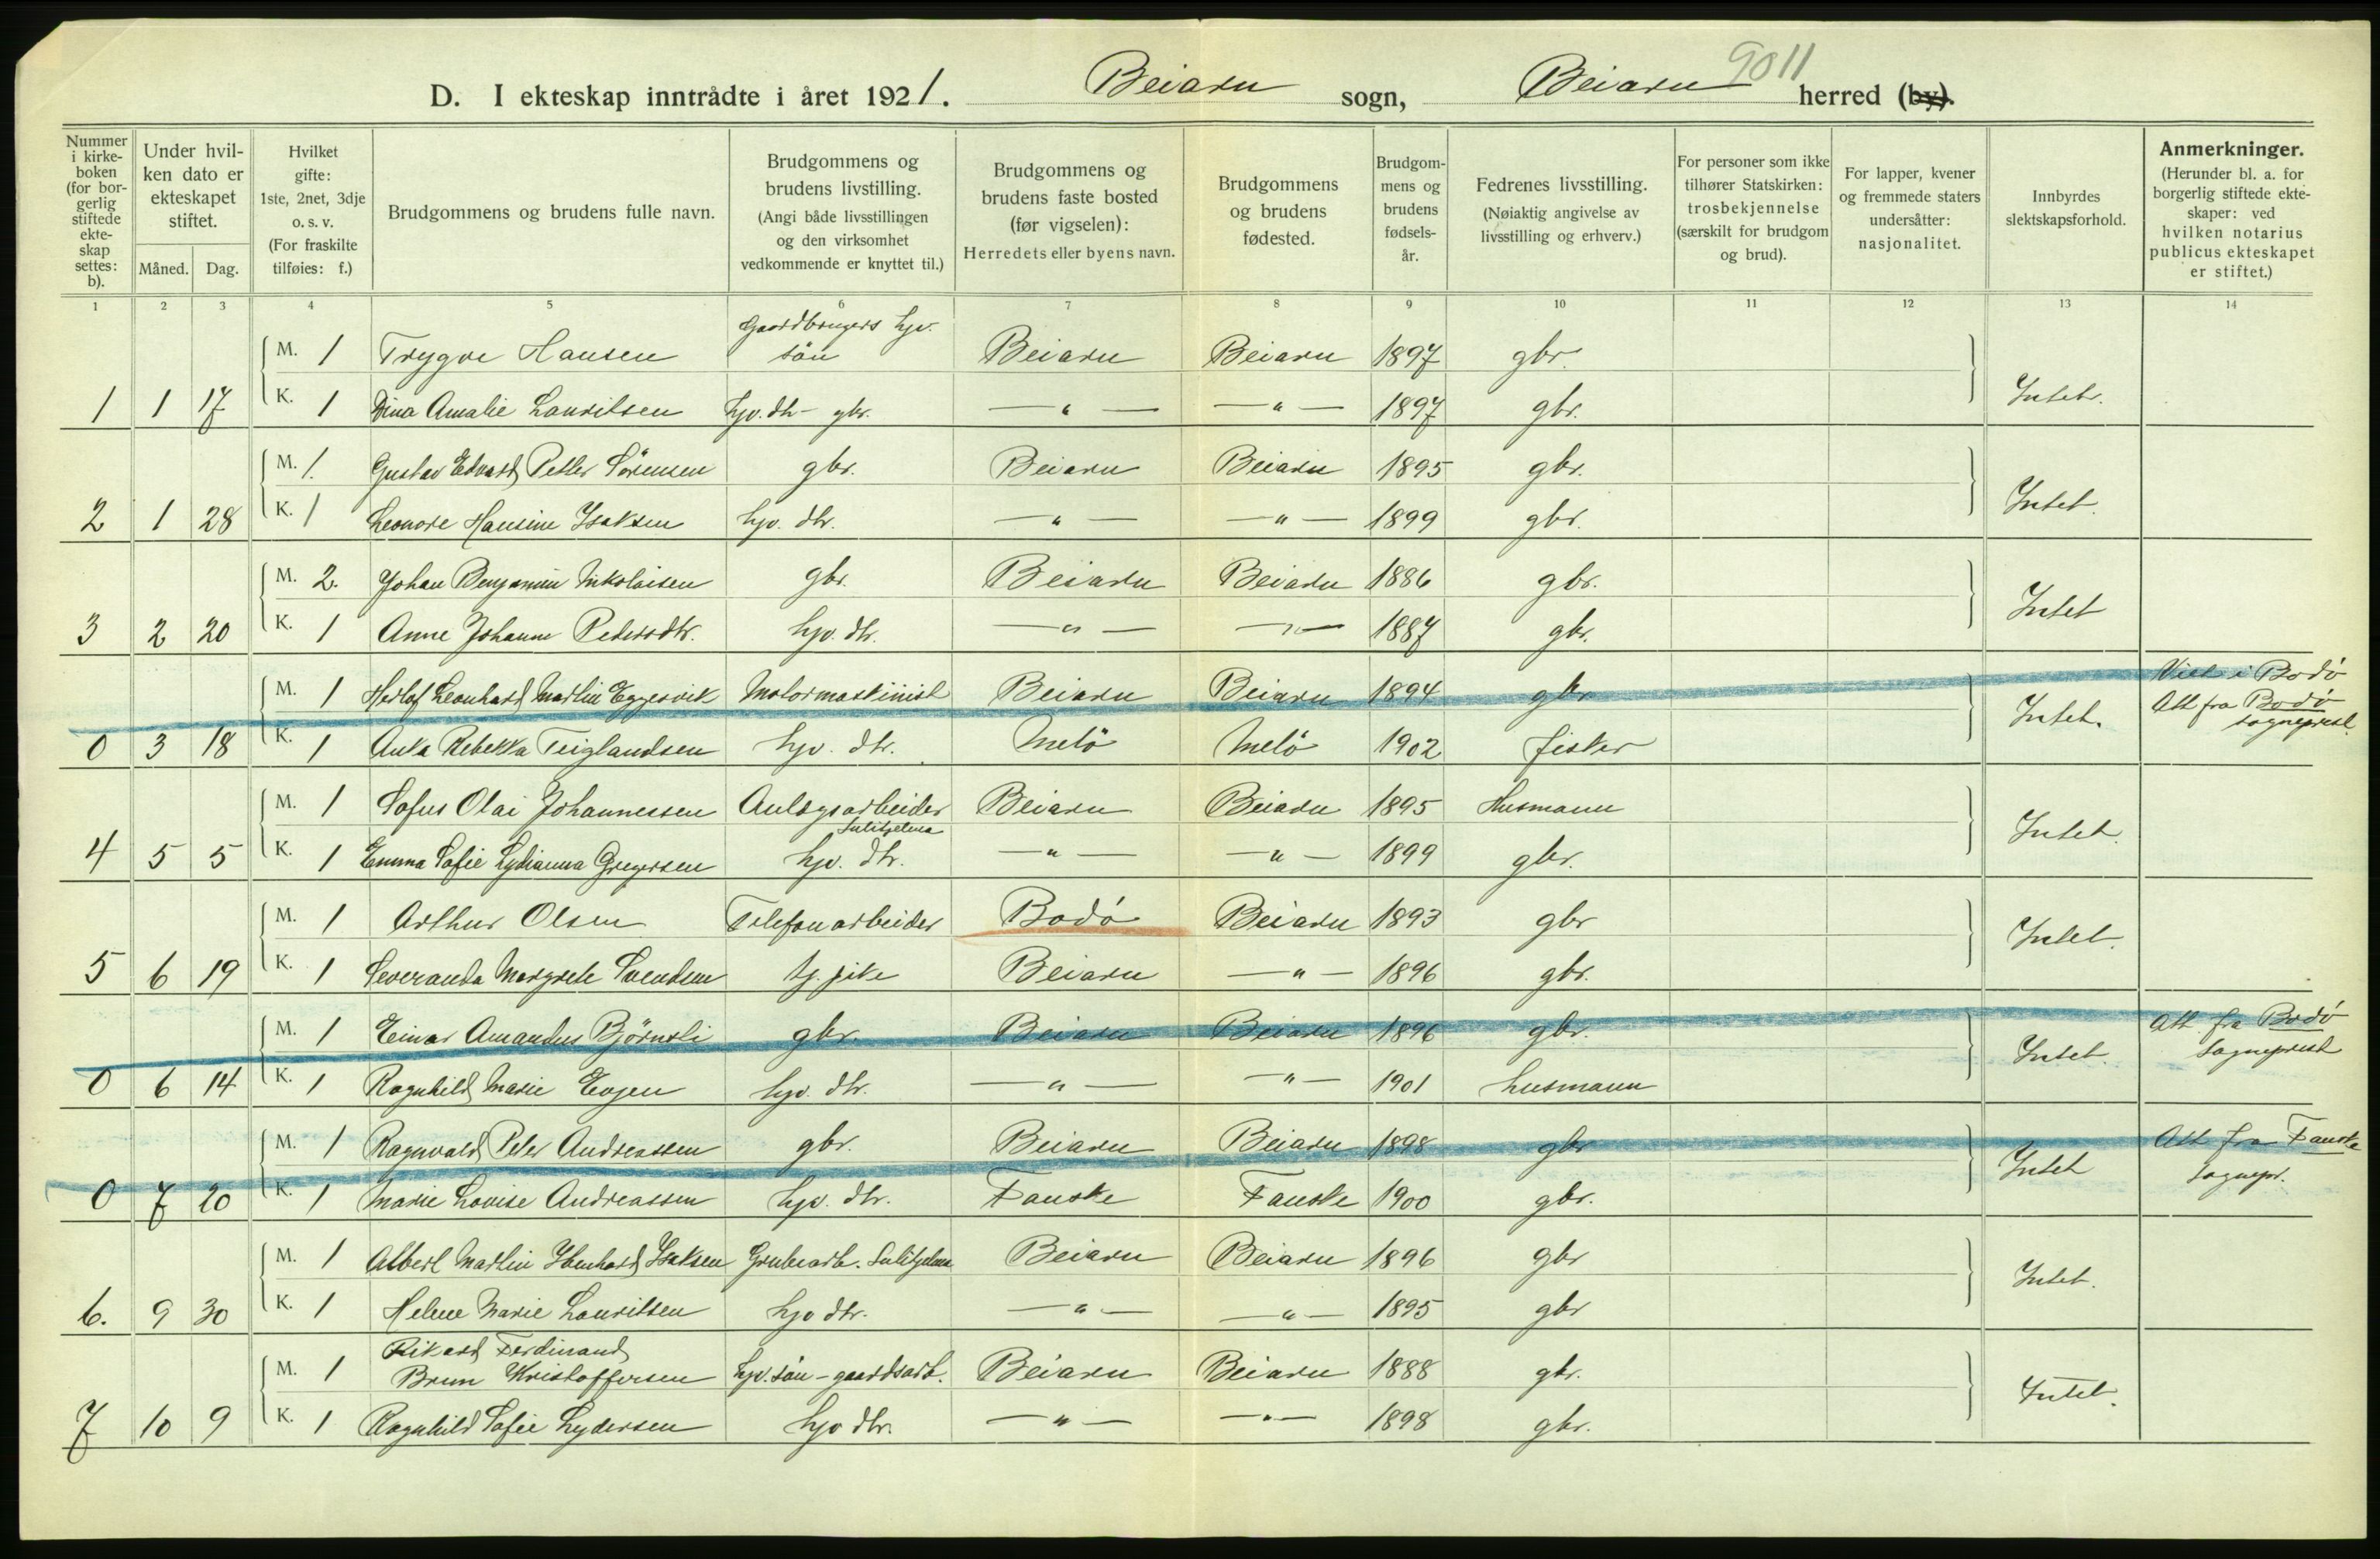 9011
D. I ekteskap inntrådte i året 1921. Beiarn sogn, Beiarn herred (by).
Nummer i kirkeboken (for borgerlig stiftede ekteskap settes: b).
Under hvilken dato er ekteskapet stiftet.
Måned. Dag.
Hvilket gifte: 1ste, 2net, 3dje o. s. v. (For fraskilte tilføies: f.)
Brudgommens og brudens fulle navn.
Brudgommens og brudens livstilling. (Angi både livsstillingen og den virksomhet vedkommende er knyttet til.)
Brudgommens og brudens faste bosted (før vigselen): Herredets eller byens navn.
Brudgommens og brudens fødested.
Brudgommens og brudens fødsels-år.
Fedrenes livsstilling. (Nøiaktig angivelse av livsstilling og erhverv.)
For personer som ikke tilhører Statskirken: trosbekjennelse (særskilt for brudgom og brud).
For lapper, kvener og fremmede staters undersåtter: nasjonalitet.
Innbyrdes slektskapsforhold.
Anmerkninger. (Herunder bl. a. for borgerlig stiftede ekteskaper: ved hvilken notarius publicus ekteskapet er stiftet.)
1 2 3 4 5 6 7 8 9 10 11 12 13 14
M. 1 Trygve Hansen Gaardbrugers hjv. sön Beiarn Beiarn 1897 gbr.
1 1 17 K. 1 Dina Amalie Lauritsen hjv. dtr - gbr. — " — — " — 1897 gbr. Intet.
M. 1. Gustav Edvard Petter Sörensen gbr. Beiarn Beiarn 1895 gbr.
2 1 28 K. 1 Leonore Hansine Isaksen hjv. dtr. — " — — " — 1899 gbr. Intet.
M. 2. Johan Benjamin Nikolaisen gbr. Beiarn Beiarn 1886 gbr.
3 2 20 K. 1 Anne Johanne Pedersdtr. hjv. dtr. — " — — " — 1887 gbr. Intet
M. 1 Herlof Leonhard Martin Eggesvik Motormaskinist Beiarn Beiarn 1894 gbr Viet i Bodö
0 3 18 K. 1 Anka Rebekka Teiglandsen hjv. dtr. Melö Melö 1902 fisker Intet. Att fra Bodö sogneprest.
M. 1 Sofus Olai Johannessen Anlegsarbeider Sulitjelma Beiarn Beiarn 1895 Husmann
4 5 5 K. 1 Emma Sofie Lydianna Gregersen hjv. dtr. — " — — " — 1899 gbr. Intet.
M. 1 Arthur Olsen Telefonarbeider Bodö Beiarn 1893 gbr
5 6 19 K. 1 Severanda Margrete Svendsen tj. pike Beiarn — " — 1896 gbr. Intet.
M. 1 Einar Amandus Björnli gbr. Beiarn Beiarn 1896 gbr. Att. fra Bodö
0 6 14 K. 1 Ragnhild Marie Evjen hjv. dtr. — " — — " — 1901 husmann Intet. Sogneprest
M. 1 Ragnvald Peter Andreassen gbr. Beiarn Beiarn 1898 gbr Att fra Fauske
0 7 20 K. 1 Marie Lovise Andreassen hjv. dtr. Fauske Fauske 1900 gbr. Intet sognepr.
M. 1 Albert Martin Ibenhard Isaksen Grubearb. Sulitjelma Beiarn Beiarn 1896 gbr
6. 9 30 K. 1 Helene Marie Lauritsen hjv dtr. — " — — " — 1895 gbr Intet.
M. 1 Rikard Ferdinand Brun Kristoffersen hjv. sön - gaardsarb. Beiarn Beiarn 1888 gbr.
7 10 9 K. 1 Ragnhild Sofie Lydersen hjv dtr. — " — — " — 1898 gbr. Intet.